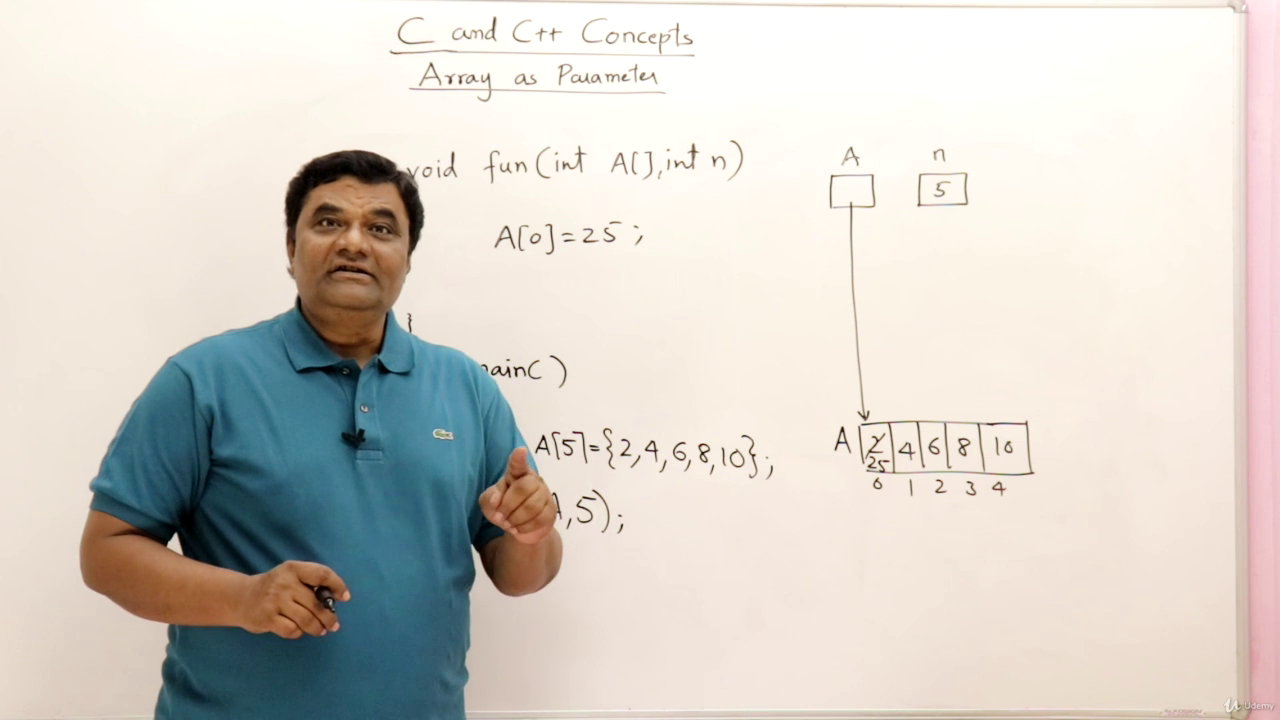 C and C++ Concepts
Array as Parameter
void fun(int A[],int n)
A[0]=25;
}
main()
A[5]={2,4,6,8,10};
A,5);
A n
5
A 2 4 6 8 10
25
0 1 2 3 4
Udemy